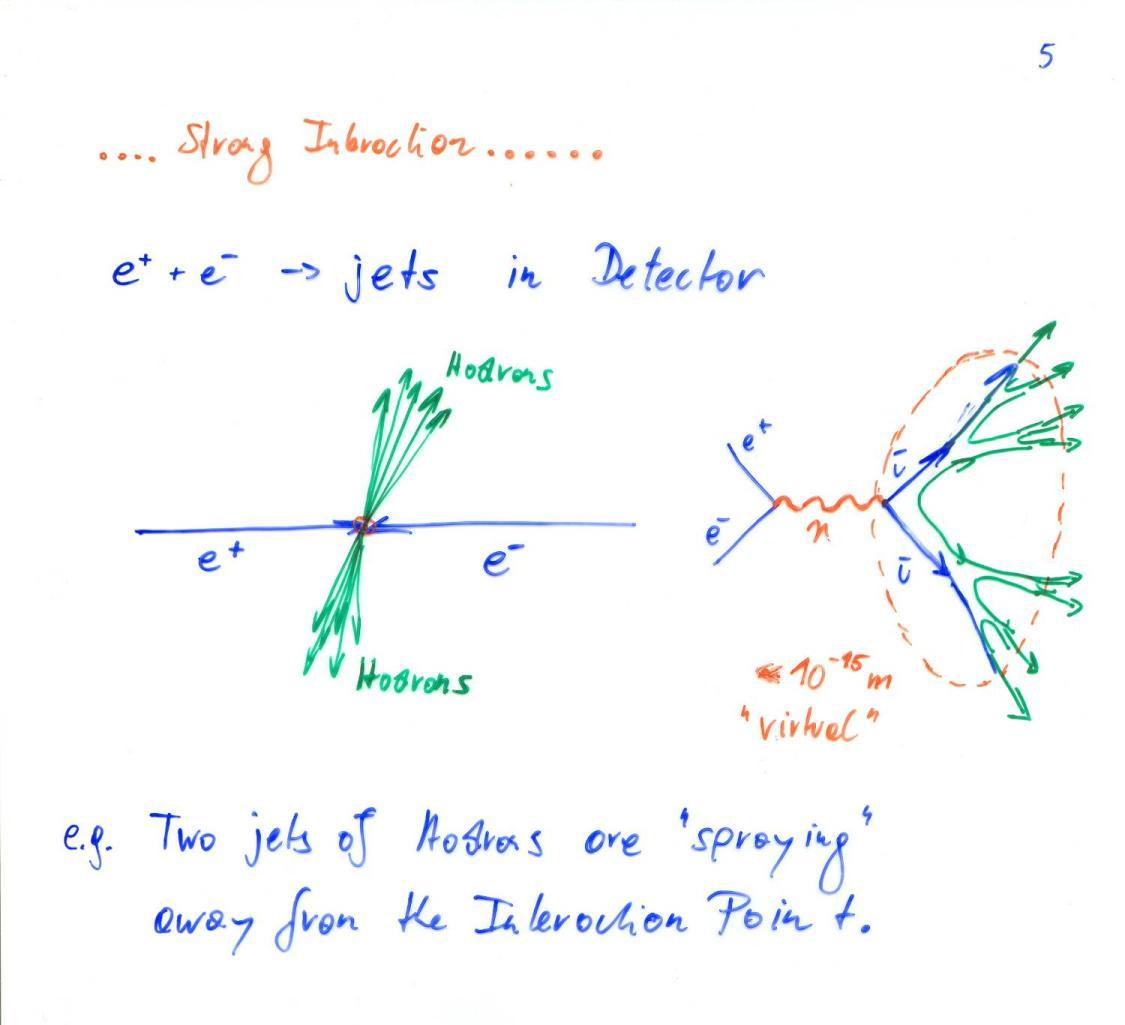 5
.... Strong Interaction ......
e⁺ + e⁻ → jets in Detector
Hadrons
e⁺
e⁻
e⁺
e⁻
Hadrons
10⁻¹⁵ m
"virtual"
e.g. Two jets of Hadrons are "spraying"
away from the Interaction Point.